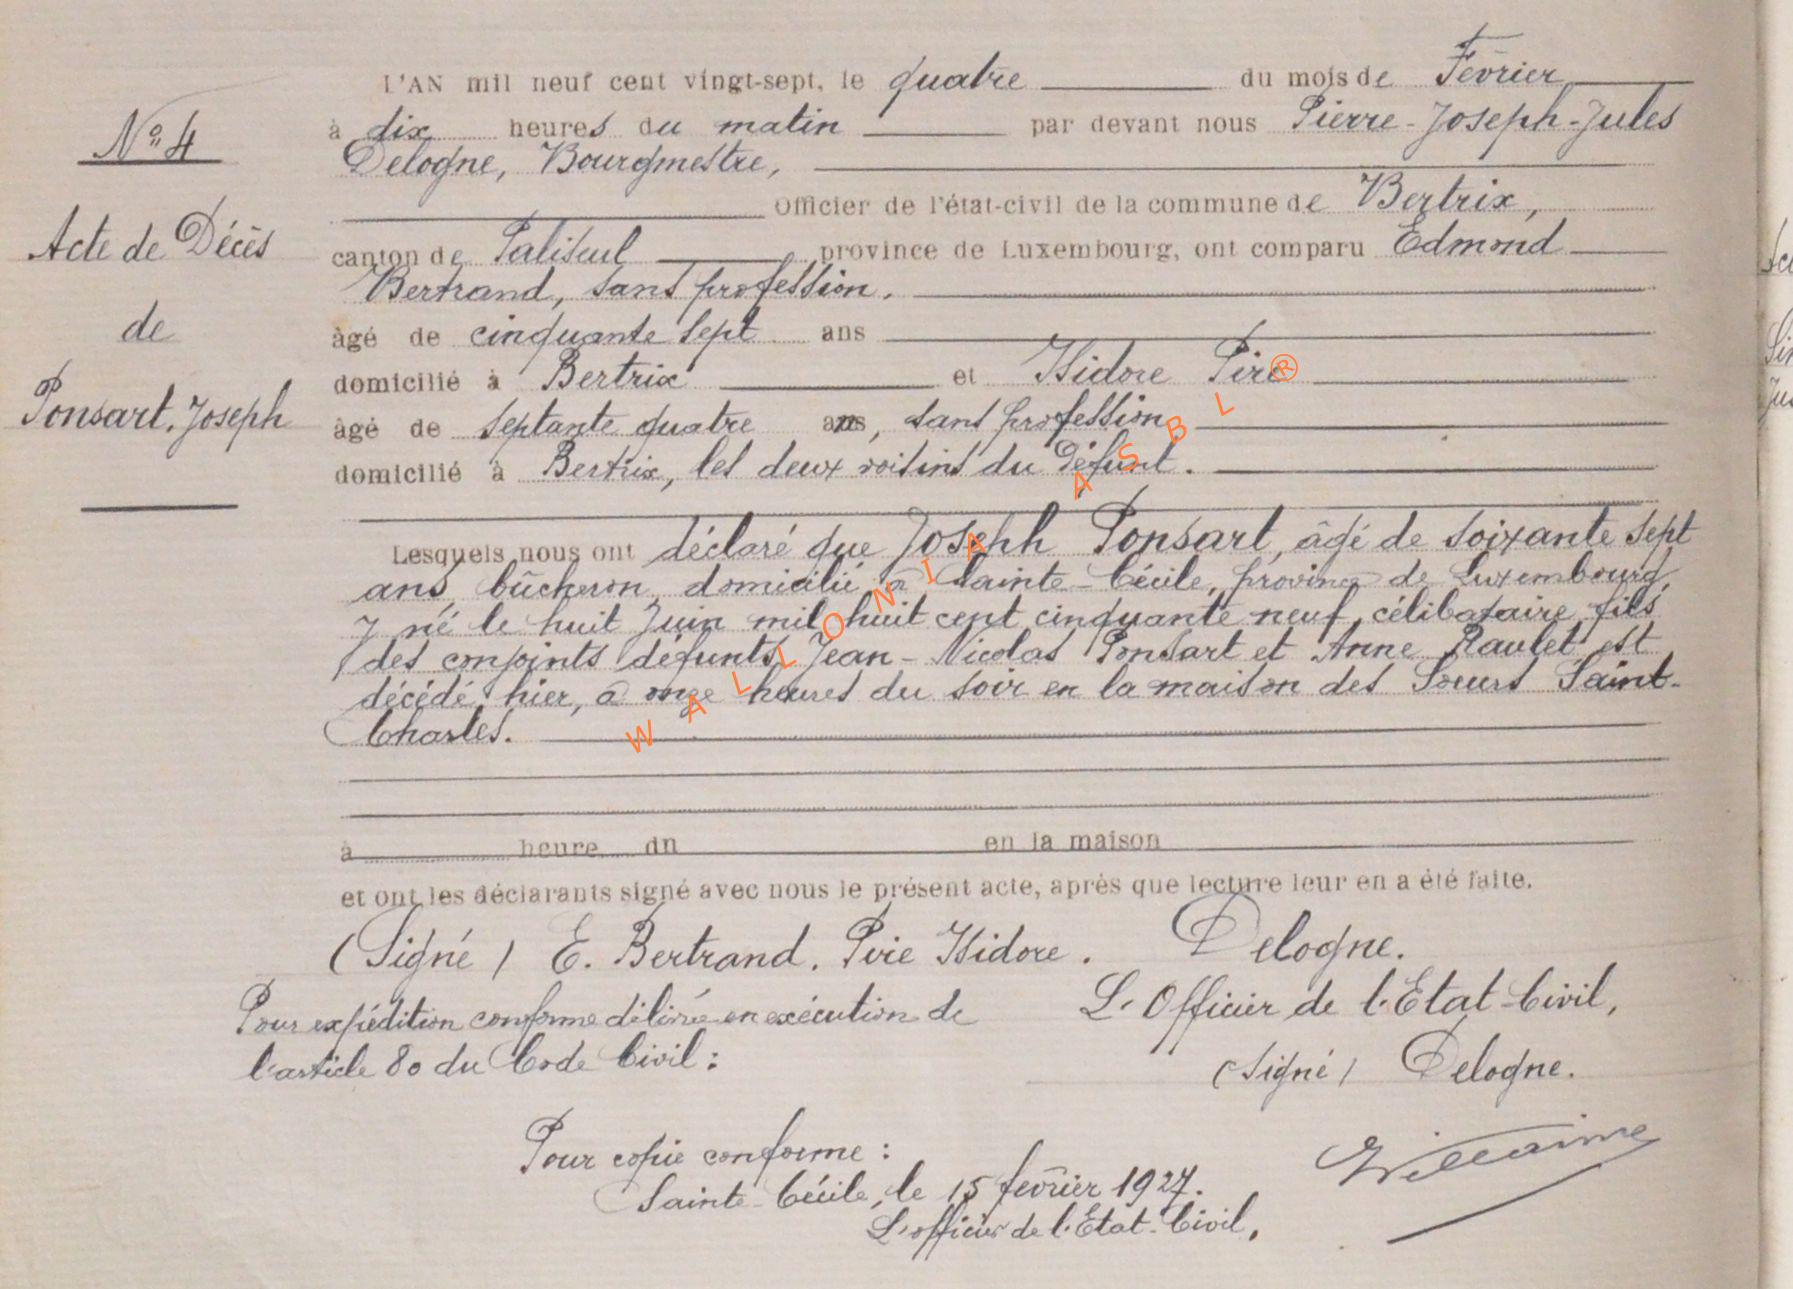 N° 4
Acte de Décès
de
Ponsart, Joseph
L'AN mil neuf cent vingt-sept, le quatre du mois de Février
à dix heures du matin par devant nous Pierre-Joseph-Jules
Delogne, Bourgmestre,
Officier de l'état-civil de la commune de Bertrix,
canton de Paliseul province de Luxembourg, ont comparu Edmond
Bertrand, sans profession,
âgé de cinquante sept ans
domicilié à Bertrix et Isidore Pire
âgé de septante quatre ans, sans profession,
domicilié à Bertrix, les deux voisins du défunt.
Lesquels nous ont déclaré que Joseph Ponsart, âgé de soixante sept
ans, bûcheron, domicilié à Sainte-Cécile, province de Luxembourg,
y né le huit Juin mil huit cent cinquante neuf, célibataire, fils
des conjoints défunts Jean-Nicolas Ponsart et Anne Raulet est
décédé hier, à onze heures du soir en la maison des Soeurs Saint-
Charles.
à heure du en la maison
et ont les déclarants signé avec nous le présent acte, après que lecture leur en a été faite.
(Signé) E. Bertrand. Pire Isidore. Delogne.
Pour expédition conforme délivrée en exécution de
l'article 80 du Code Civil :
L'Officier de l'Etat-Civil,
(signé) Delogne.
Pour copie conforme :
Sainte-Cécile, le 15 février 1927.
L'officier de l'Etat-Civil,
WALLONIA ASBL ®